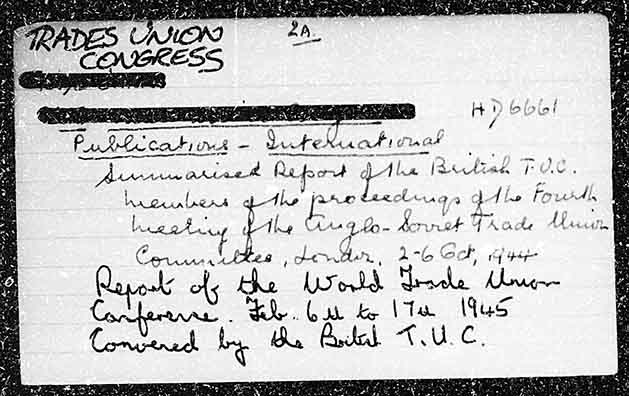 TRADES UNION
2A.
CONGRESS
HD6661
Publications - International
Summarised Report of the British T.U.C.
members of the proceedings of the Fourth
meeting of the Anglo-Soviet Trade Union
Committee, London, 2-6 Oct, 1944
Report of the World Trade Union
Conference. Feb. 6th to 17th 1945
Convened by the British T.U.C.